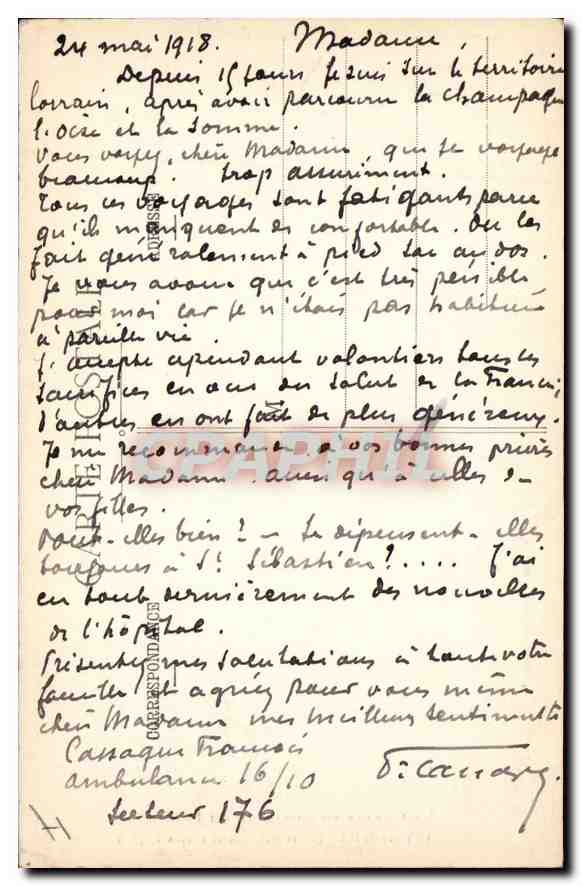 24 mai 1918. Madame,
Depuis 15 jours je suis sur le territoire
lorrain, après avoir parcouru la Champagne
l'Oise et la Somme.
Vous voyez, chère Madame, que je voyage
beaucoup. trop assurément.
Tous ces voyages sont fatigants parce
qu'ils manquent de confortable. On les
fait généralement à pied sac au dos.
Je vous avoue que c'est très pénible
pour moi car je n'étais pas habitué
à pareille vie.
J'accepte cependant volontiers tous ces
sacrifices en vue du salut de la France;
d'autres en ont fait de plus généreux.
Je me recommande à vos bonnes prières
chère Madame ainsi qu'à celles de
vos filles.
Vont-elles bien? - Se dépensent-elles
toujours à St Sébastien?.... J'ai
eu tout dernièrement des nouvelles
de l'hôpital.
Présentez mes salutations à toute votre
famille et agréez pour vous même
chère Madame mes meilleurs sentiments
Cassagne François
ambulance 16/10
Secteur 176
CARTE POSTALE
CORRESPONDANCE
ADRESSE
M
CPAPHIL